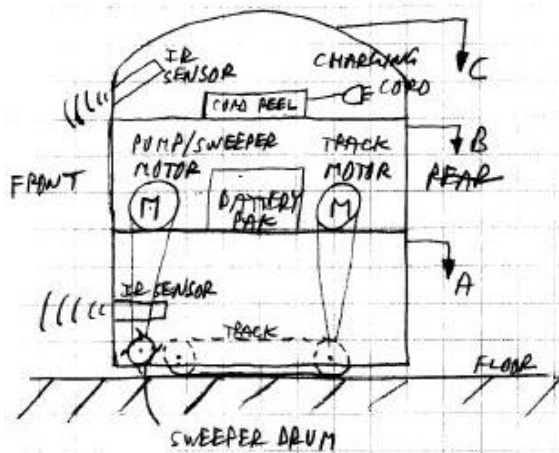 IR
SENSOR
CHARGING
CORD
CORD REEL
C
PUMP/SWEEPER
MOTOR
TRACK
MOTOR
B
FRONT
REAR
M
BATTERY
PAK
M
A
IR SENSOR
TRACK
FLOOR
SWEEPER DRUM